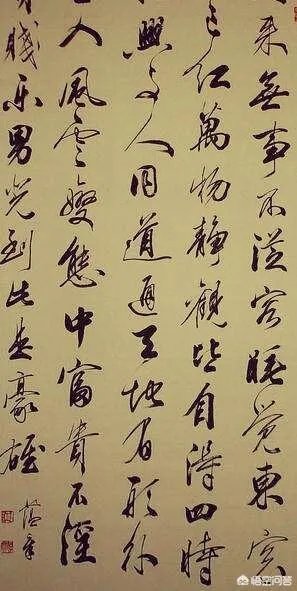 來無事不從容睡覺東窗
已紅萬物靜觀皆自得四時
興與人同道通天地有形外
入風雲變態中富貴不淫
賤樂男兒到此是豪雄
悟空问答